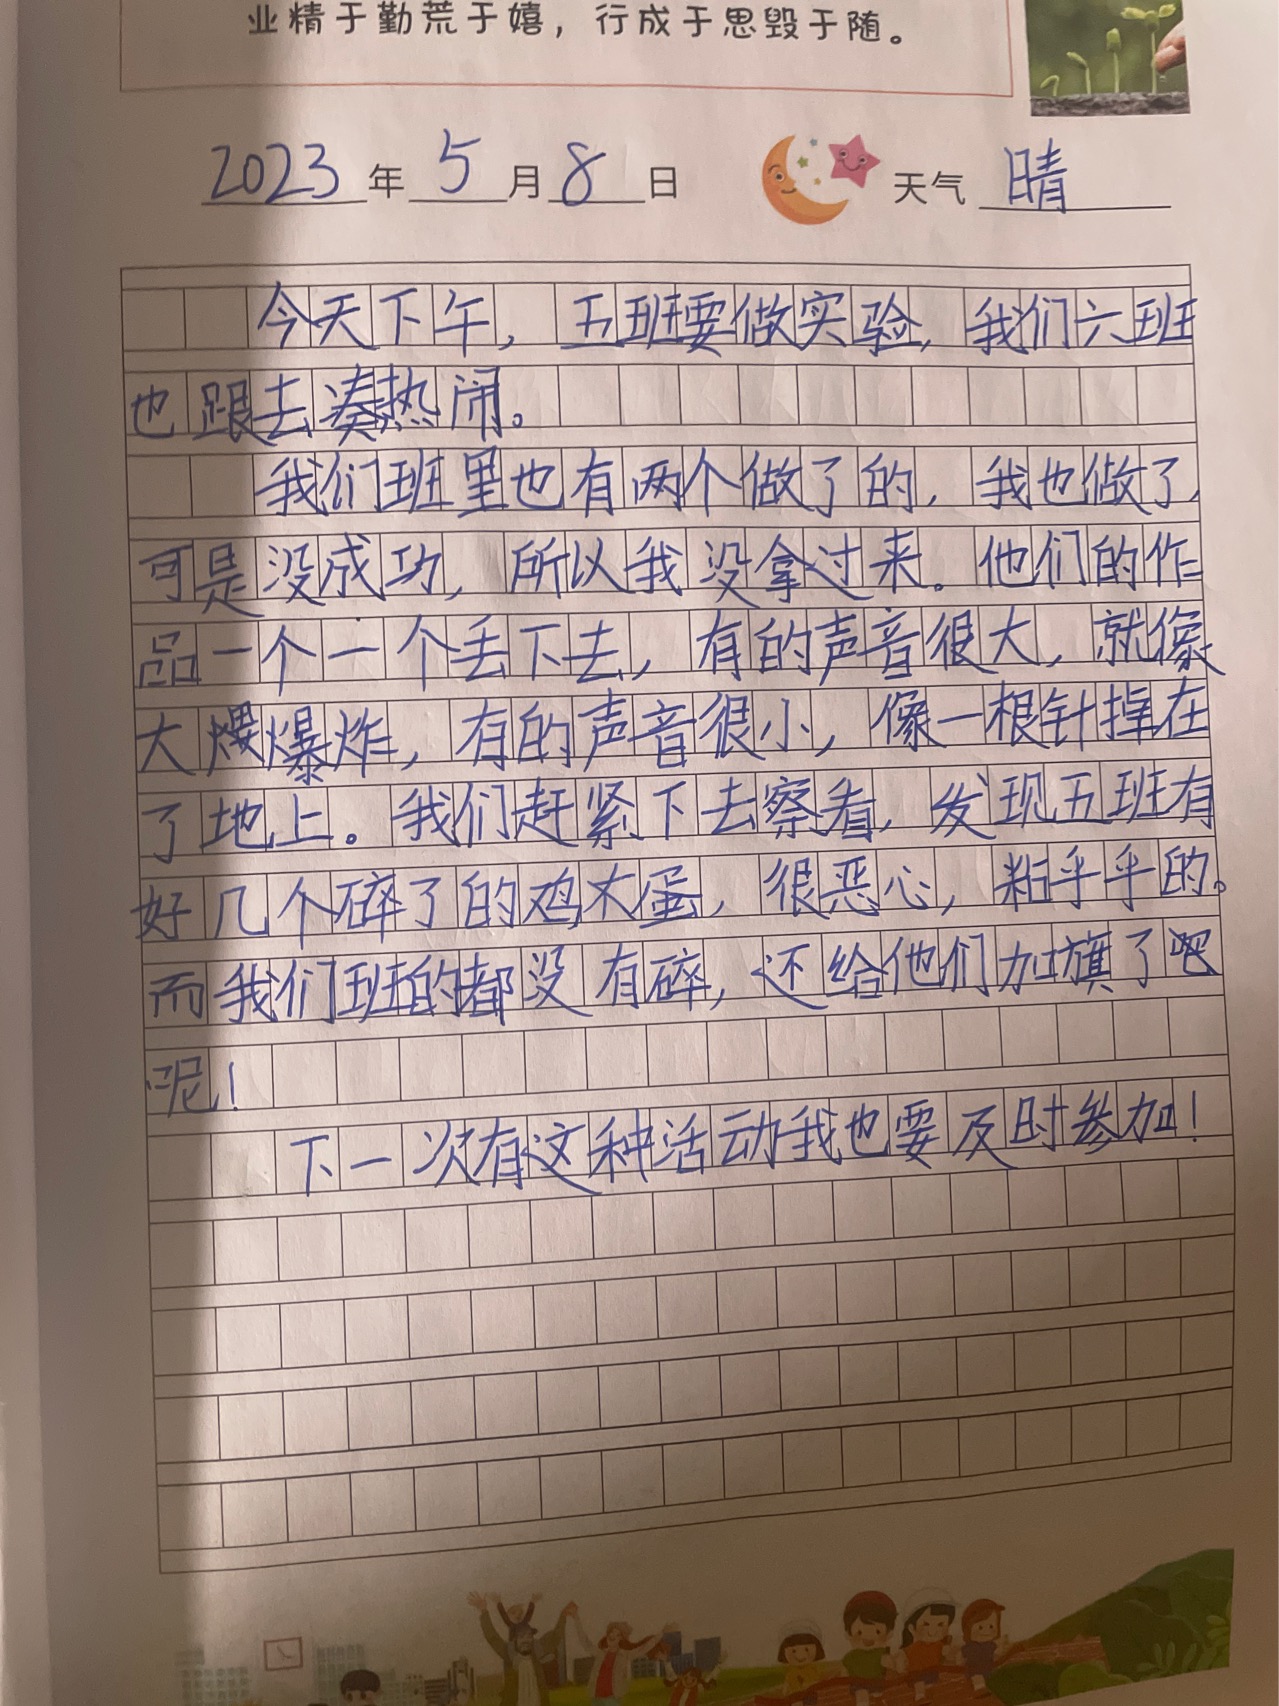 业精于勤荒于嬉，行成于思毁于随。
2023年5月8日 天气 晴
今天下午，五班要做实验，我们六班
也跟去凑热闹。
我们班里也有两个做了的，我也做了，
可是没成功，所以我没拿过来。他们的作
品一个一个丢下去，有的声音很大，就像
大爆炸，有的声音很小，像一根针掉在
了地上。我们赶紧下去察看，发现五班有
好几个碎了的鸡蛋，很恶心，粘乎乎的。
而我们班的都没有碎，还给他们加旗了
呢！
下一次有这种活动我也要及时参加！